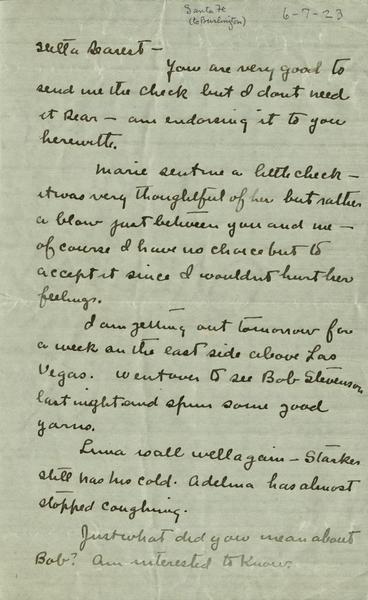 Santa Fe
(to Burlington)
6-7-23
Stella Dearest -
You are very good to
send me the check but I dont need
it Dear - am endorsing it to you
herewith.
Marie sent me a little check -
it was very thoughtful of her but rather
a blow just between you and me -
of course I have no choice but to
accept it since I wouldnt hurt her
feelings.
I am getting out tomorrow for
a week on the east side above Las
Vegas. Went over to see Bob Stevenson
last night and spun some good
yarns.
Luna is all well again - Starker
still has his cold. Adelina has almost
stopped coughing.
Just what did you mean about
Bob? Am interested to know.